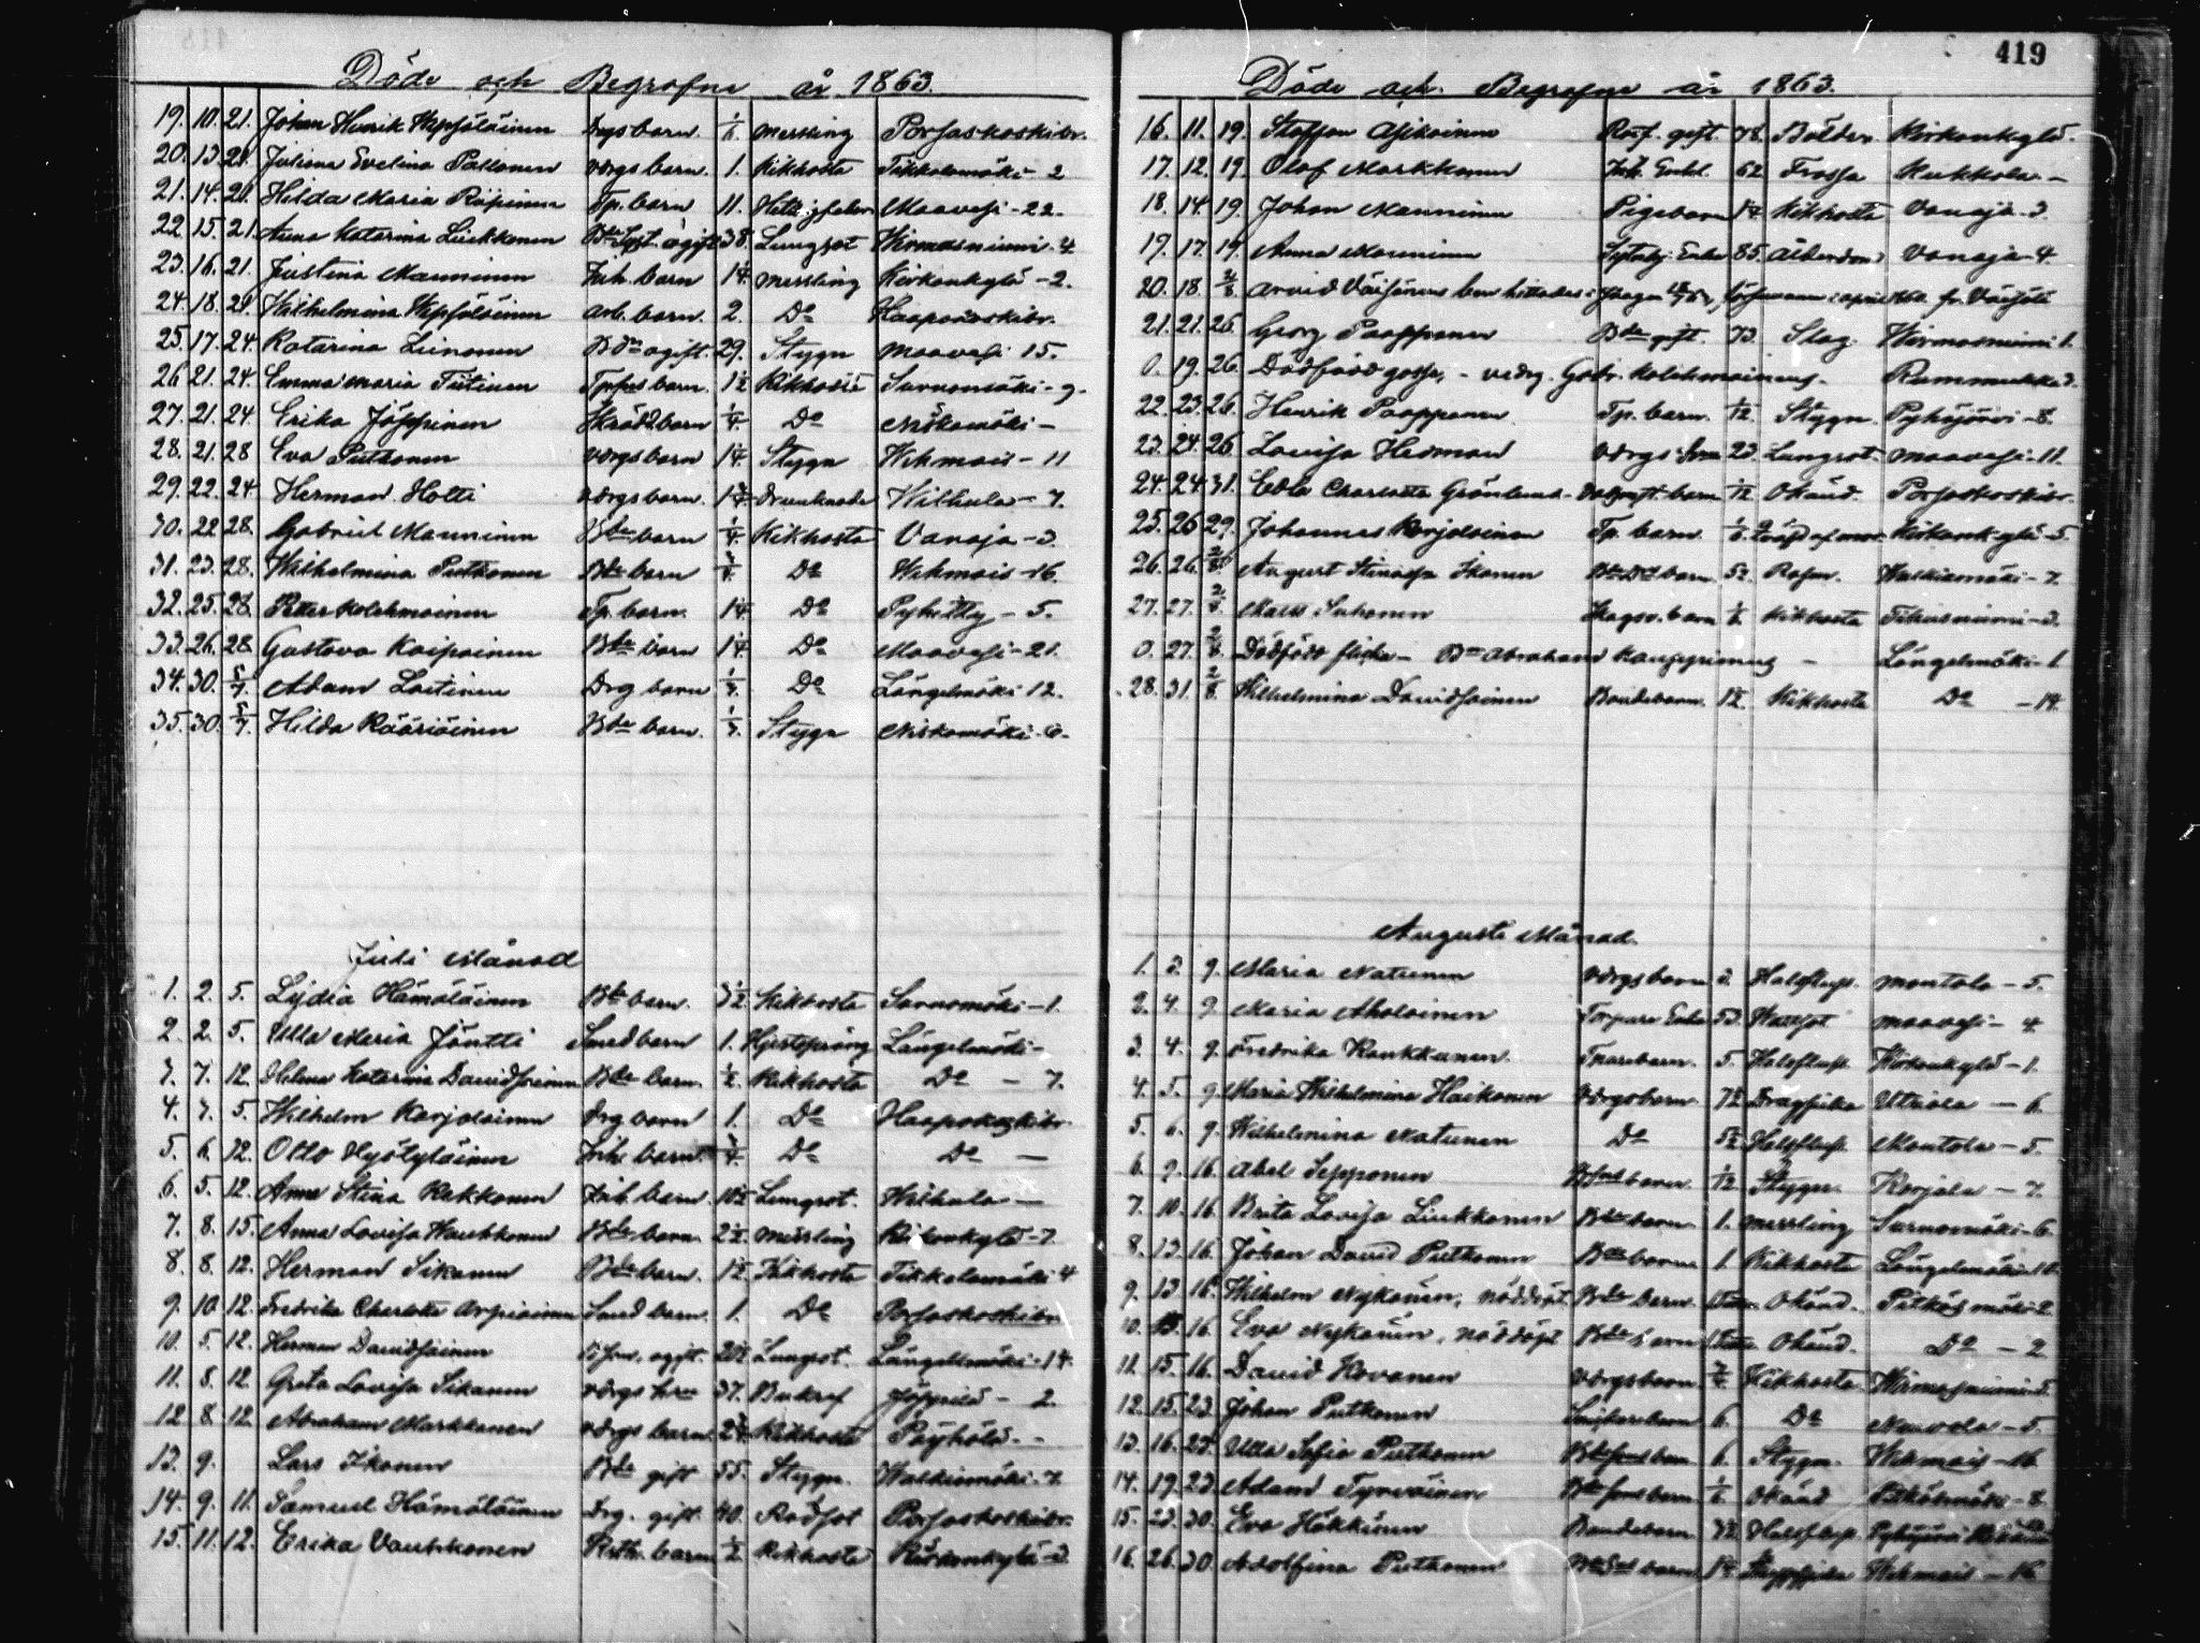 Döde och Begrafne år 1863.
19. 10. 21. Johan Henrik Hepsöläinen Drgs barn. 1/6 Messling Porsaskoskibr.
20. 13. 21. Juliana Evelina Paltonen vdrgs barn. 1. Kikhosta Tikkalamäki - 2
21. 14. 21. Hilda Maria Räpinen Tp. barn 11. Maavesi - 22.
22. 15. 21. Anna Katarina Liukkonen ogift 38. Lungsot Hirmasniemi - 4
23. 16. 21. Justina Manninen Inh. barn 1 1/4 Messling Kirkonkylä - 2.
24. 18. 21. Wilhelmina Hepsöläinen Arb. barn. 2. Do Haapakoskibr.
25. 17. 24. Katarina Leinonen ogift. 29. Stygn Maavesi 15.
26. 21. 24. Emma Maria Tiitinen barn. 1 1/2 Kikhosta Sarvomäki - 9.
27. 21. 24. Erika Jäppinen Skrädd. barn 1/4 Do Niskamäki -
28. 21. 28 Eva Putkonen vdrgs barn 1 1/4 Stygn Wehmais - 11
29. 22. 24. Herman Holti vdrgs barn. 1 3/4 Drunknade Wilhula - 7.
30. 22. 28. Gabriel Manninen Bde barn 1/4 Kikhosta Vanaja - 3.
31. 23. 28. Wilhelmina Putkonen Bde barn 3/4 Do Wehmais - 16.
32. 25. 28. Petter Kolehmainen Tp. barn. 1 1/4 Do Pyhitty - 5.
33. 26. 28. Gustava Kaipainen Bde barn 1 1/4 Do Maavesi - 21.
34. 30. 5/7. Adam Laitinen Drg barn 1/3. Do Längelmäki 12.
35. 30. 5/7. Hilda Rääriäinen Bde barn. 1/3. Stygn Niskamäki - 6.
Juli Månad
1. 2. 5. Lydia Hämäläinen Bde barn. 3 1/2 Kikhosta Sarvomäki - 1.
2. 2. 5. Ulla Maria Jäntti Smed barn 1. Hjertsprång Längelmäki -
3. 7. 12. Helena Katarina Davidsainen Bde barn. 1/2. Kikhosta Do - 7.
4. 3. 5. Wilhelm Karjalainen Drg barn 1. Do Haapakoskibr.
5. 6. 12. Otto Hyötyläinen Inh. barn. 3/4. Do Do -
6. 5. 12. Anna Stina Kekkonen Inh. barn. 10 1/2 Lungsot. Wilhula -
7. 8. 15. Anna Lovisa Haukkonen Bde barn. 2 1/2. Messling Kirkonkylä - 7.
8. 8. 12. Herman Sikanen Bde barn. 1 1/2 Kikhosta Tikkalamäki 4
9. 10. 12. Fredrika Charlotta Arpiainen Smed barn. 1. Do Porsaskoskibr.
10. 5. 12. Herman Davidsainen ogift. 20 1/2 Lungsot. Längelmäki - 14.
11. 8. 12. Greta Lovisa Sikanen vdrgs hru 37. Jäppilä - 2.
12. 8. 12. Abraham Markkanen vdrgs barn. 2 3/4 Kikhosta Päyhölä -
13. 9. Lars Ikonen Bde gift 55. Stygn. Walkiamäki - 7.
14. 9. 11. Samuel Hämäläinen Drg. gift. 40. Rödsot Porsaskoskibr.
15. 11. 12. Erika Vauhkonen barn 1/2 Kikhosta Kirkonkylä - 3.
419
Döde och Begrafne år 1863.
16. 11. 19. Staffan Asikainen gift 78. Kirkonkylä.
17. 12. 19. Olof Markkanen Inh. Enkl. 62 Frossa Kukkola -
18. 14. 19. Johan Manninen Pigebarn 1/4 Kikhosta Vanaja - 3.
19. 17. 19. Anna Manninen Enka 85. Ålderdom Vanaja - 4.
20. 18. 2/8 Arvid Väisänens
21. 21. 26. Georg Paappanen Bde gift. 73. Slag. Hirmasniemi 1.
0. 19. 26. Dödfödd gosse, - vdrg. Gabr. Kolehmainens - Rummukka 3.
22. 23. 26. Henrik Paappanen. Tp. barn. 1/12. Stygn. Pyhäjärvi - 8.
23. 24. 26. Lovisa Hedman vdrgs hru 23. Lungsot. Maavesi - 11.
24. 24. 31. Edla Charlotta Grönlund - barn 1/12 Okänd. Porsaskoskibr.
25. 26. 29. Johannes Karjalainen Tp. barn. 1/6. Kirkonkylä - 5.
26. 26. 2/8. August Ikonen barn. 5 1/2. Walkiamäki - 7.
27. 27. 2/8. Suhonen barn 1/6. Kikhosta Tihusniemi - 3.
0. 27. 2/8. Dödfödd flicka - Bde Abraham Kauppinens - Längelmäki - 1.
28. 31. 2/8. Wilhelmina Davidsainen Bondebarn. 1 1/2. Kikhosta Do - 14.
Augusti Månad.
1. 3. 9. Maria Natunen vdrgs barn 3. Halsfluss. Montola - 5.
2. 4. 9. Maria Aholainen Torpare Enka 53. Wattsot Maavesi - 4
3. 4. 9. Fredrika Raukkanen. barn. 5. Halsfluss. Kirkonkylä - 1.
4. 5. 9. Maria Wilhelmina Haikonen vdrgs barn. 7 1/2 Dragsjuka Utriala - 6.
5. 6. 9. Wilhelmina Natunen Do 5 1/2 Halsfluss. Montola - 5.
6. 9. 16. Abel Sepponen barn. 1/12 Stygn. Korjala - 7.
7. 10. 16. Brita Lovisa Liukkonen Bde barn. 1. Messling Sarvomäki - 6.
8. 13. 16. Johan David Putkonen Bde barn 1. Kikhosta Längelmäki
9. 13. 16. Wilhelm Nykänen, nöddöpt. Bde barn. Okänd. Pitkäsmäki 2.
10. 13. 16. Eva Nykänen, nöddöpt Bde barn Okänd. Do - 2
11. 15. 16. David Hovanen vdrgs barn 3/4. Kikhosta Hirmasniemi 5.
12. 15. 23. Johan Putkonen barn 6. Do Neuvola - 5.
13. 16. 23. Ulla Sofia Putkonen barn 6. Stygn. Wehmais - 16
14. 19. 23. Adam Tynväinen barn. 1/6. Okänd Pitkäsmäki - 8.
15. 23. 30. Eva Häkkinen Bondebarn. Halsfluss. Pyhäjärvi
16. 26. 30. Adolfina Putkonen barn. 1 1/4. Wehmais - 16